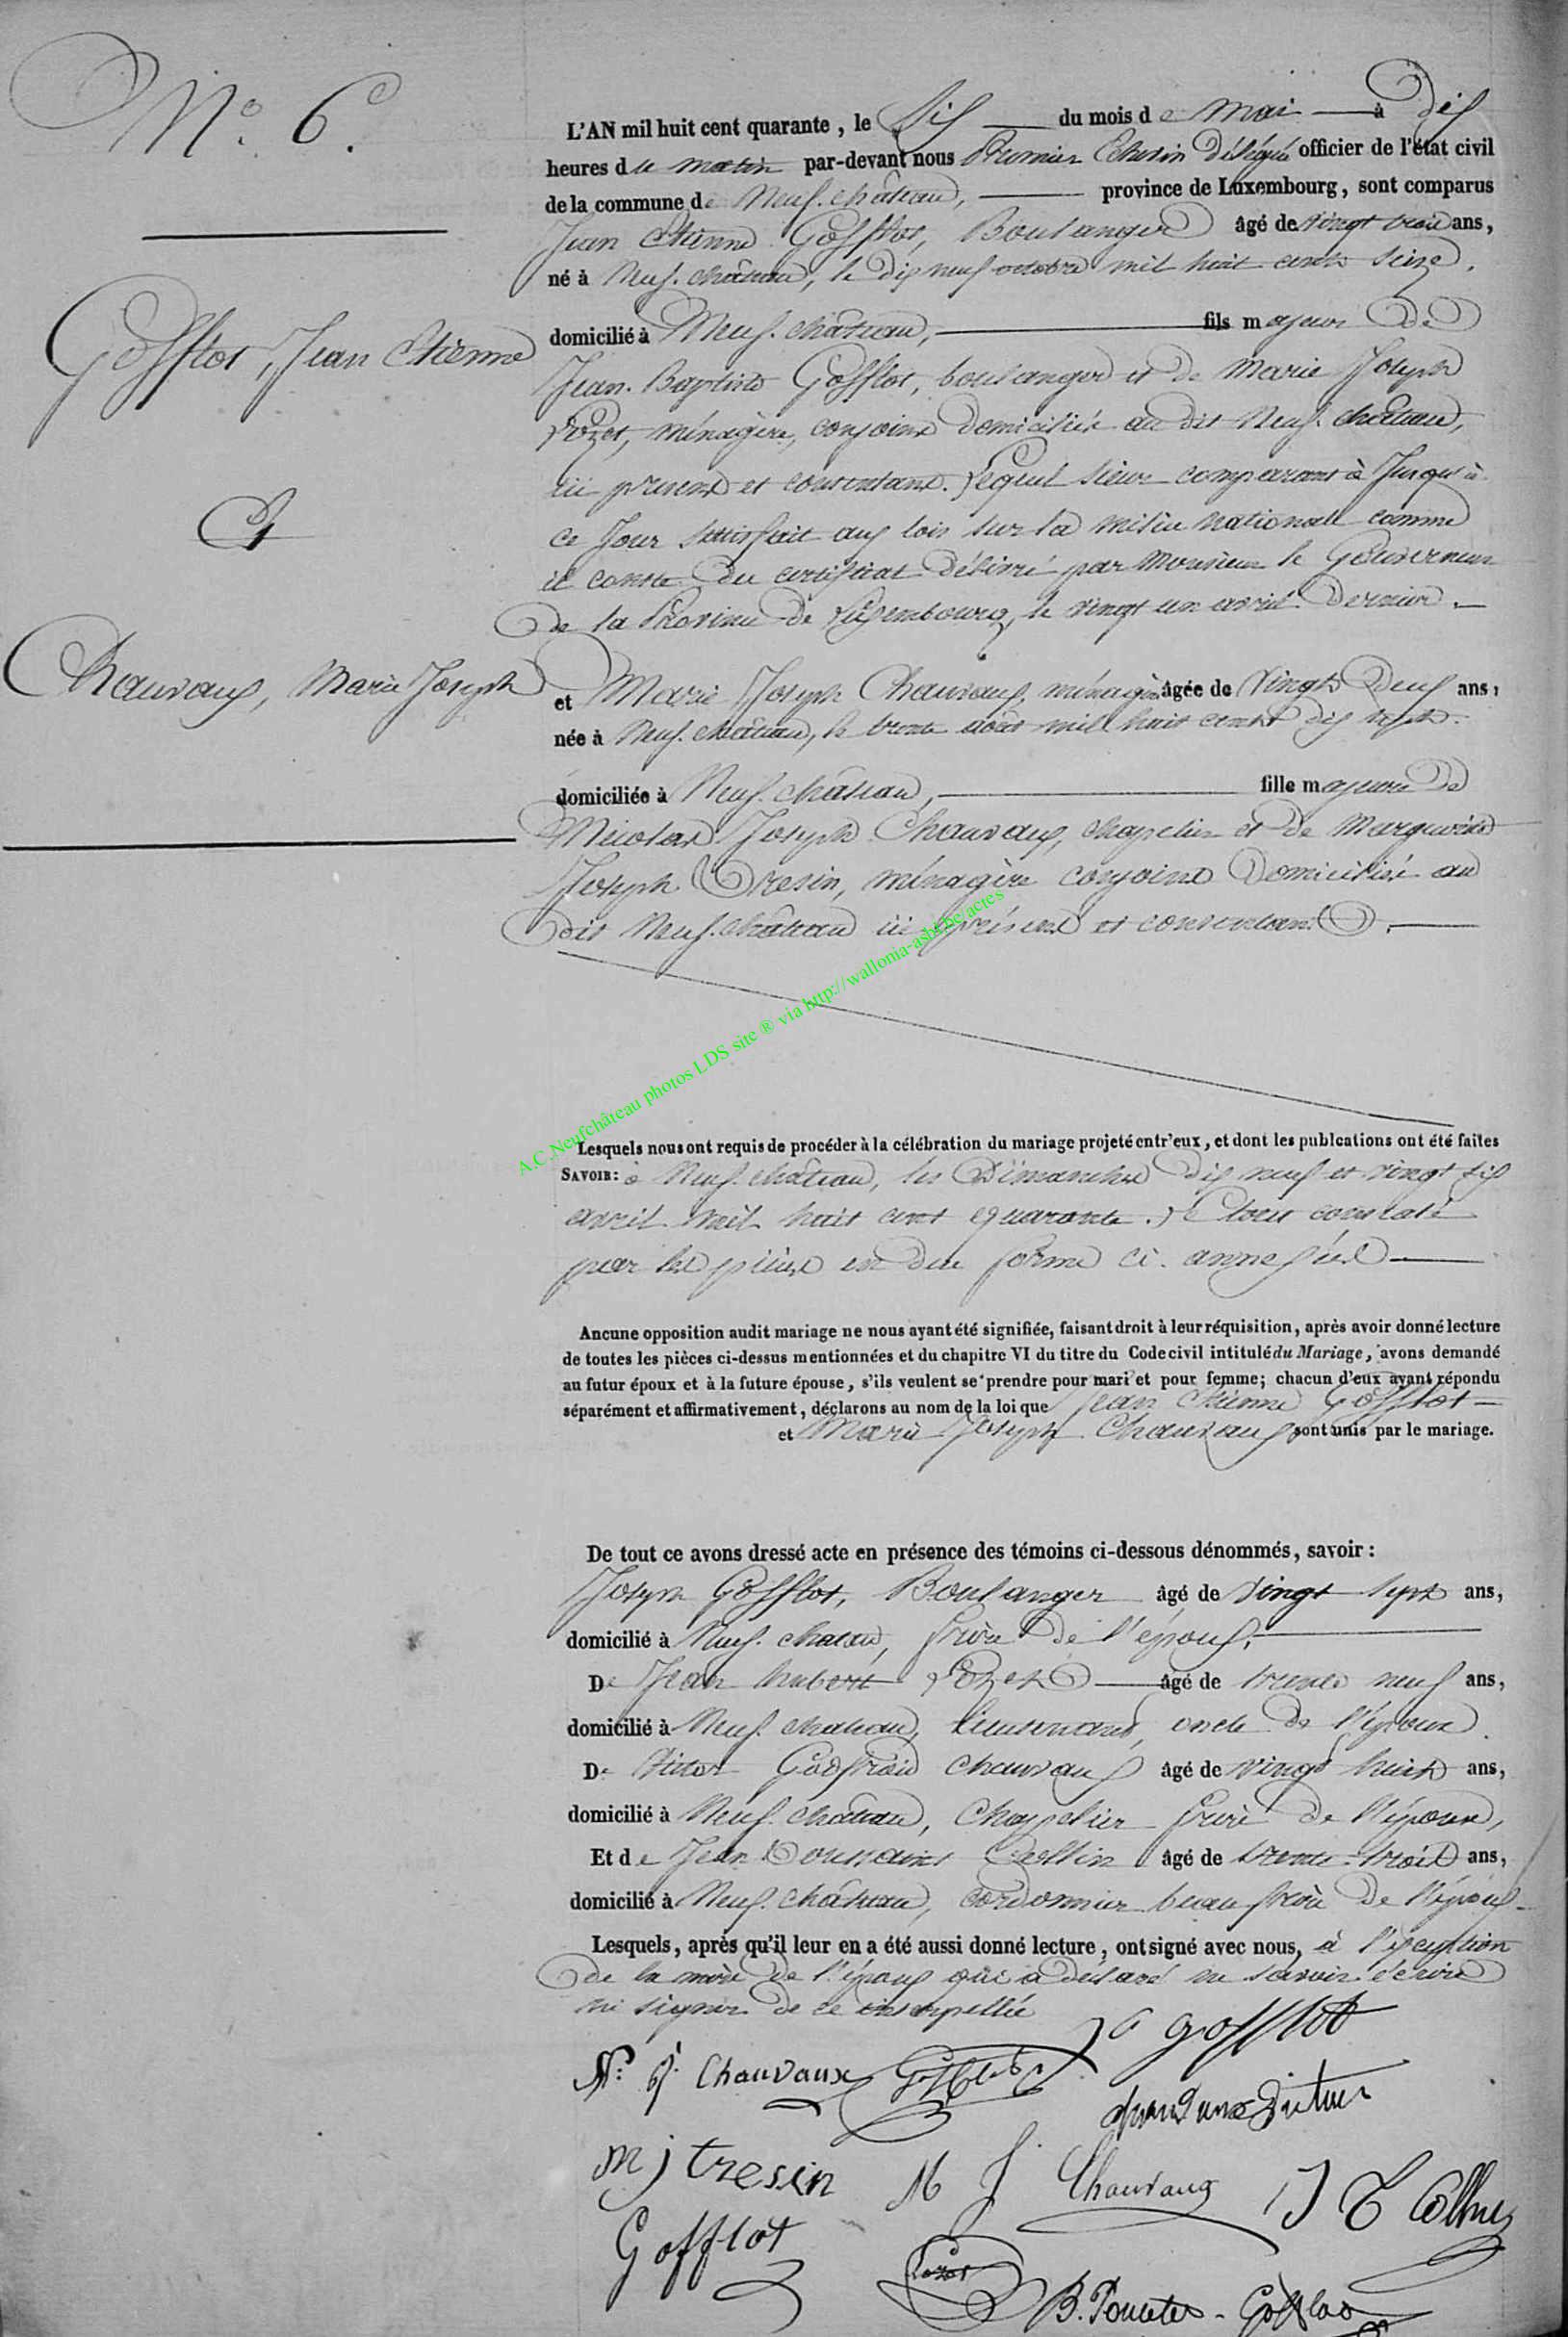 N.º 6.
Gofflot, Jean Etienne
Et
Chauvaux, Marie Joseph
L'AN mil huit cent quarante, le Six du mois de Mai à Dix
heures du matin par-devant nous Premier Echevin Délégué officier de l'état civil
de la commune de Neuf-château, province de Luxembourg, sont comparus
Jean Etienne Gofflot, Boulanger âgé de vingt trois ans,
né à Neuf-château, le dix neuf octobre mil huit cents seize.
domicilié à Neuf-château, fils majeur de
Jean-Baptiste Gofflot, boulanger et de Marie Joseph
Pozet, ménagère, conjoints domiciliés au dit Neuf-château,
ici présents et consentans. Lequel sieur comparant à Jusqu'à
ce Jour satisfait aux lois sur la milice nationale comme
il conste du certificat délivré par Monsieur le Gouverneur
de la Province de Luxembourg, le vingt un avril dernier.
et Marie Joseph Chauvaux, ménagère âgée de Vingt Deux ans,
née à Neuf-château, le trente août mil huit cents dix sept.
domiciliée à Neuf-château, fille majeure de
Nicolas Joseph Chauvaux, chapelier et de Marguerite
Joseph Tresin, ménagère conjoints Domiciliés au
dit Neuf-château ici présents et consentants.
A.C.Neufchâteau photos LDS site ® via http://wallonia-asbl.be/actes
Lesquels nous ont requis de procéder à la célébration du mariage projeté entr'eux, et dont les publcations ont été faites
SAVOIR: à Neuf-château, les Dimanches dix neuf et vingt six
avril mil huit cent quarante. Le tout constaté
par les pièces en due forme ci-annexées
Aucune opposition audit mariage ne nous ayant été signifiée, faisant droit à leur réquisition, après avoir donné lecture
de toutes les pièces ci-dessus mentionnées et du chapitre VI du titre du Code civil intitulé du Mariage, avons demandé
au futur époux et à la future épouse, s'ils veulent se prendre pour mari et pour femme; chacun d'eux ayant répondu
séparément et affirmativement, déclarons au nom de la loi que Jean Etienne Gofflot
et Marie Joseph Chauvaux sont unis par le mariage.
De tout ce avons dressé acte en présence des témoins ci-dessous dénommés, savoir:
Joseph Gofflot, Boulanger âgé de Vingt Sept ans,
domicilié à Neuf-chateau, frère de l'époux,
De Jean hubert Pozet âgé de trente neuf ans,
domicilié à Neuf-chateau, lieutenant, oncle de l'époux
De Victor Godfroid Chauvaux âgé de vingt huit ans,
domicilié à Neuf-château, Chapelier frère de l'épouse,
Et de Jean Toussaint Collin âgé de trente-trois ans,
domicilié à Neuf-château, cordonnier beau frère de l'époux
Lesquels, après qu'il leur en a été aussi donné lecture, ont signé avec nous, à l'exception
de la mère de l'époux qui a déclaré ne savoir écrire
ni signer de ce interpellée
Gofflot
N. J. Chauvaux Gofflot
Chauvaux Victor
M j tresin M J Chauvaux J T Collin
Gofflot
Pozet
B. Poncelet - Gofflot